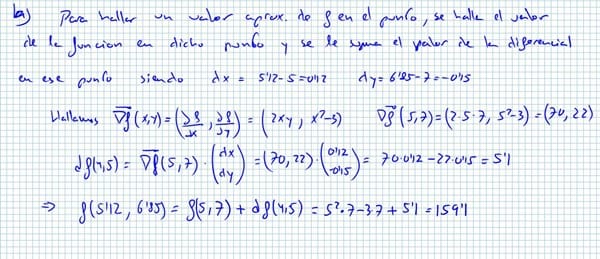 b) Para hallar un valor aprox. de f en el punto, se halla el valor
de la función en dicho punto y se le suma el valor de la diferencial
en ese punto siendo dx = 5'12-5=0'12 dy=6'85-7=-0'15
Hallamos ∇f(x,y)=(∂f/∂x, ∂f/∂y)=(2xy, x²-3) ∇f(5,7)=(2·5·7, 5²-3)=(70,22)
df(4,5)=∇f(5,7)·(dx dy)=(70,22)·(0'12 -0'15)= 70·0'12-22·0'15=5'1
⇒ f(5'12, 6'85)=f(5,7)+df(4,5)=5²·7-3·7+5'1=159'1